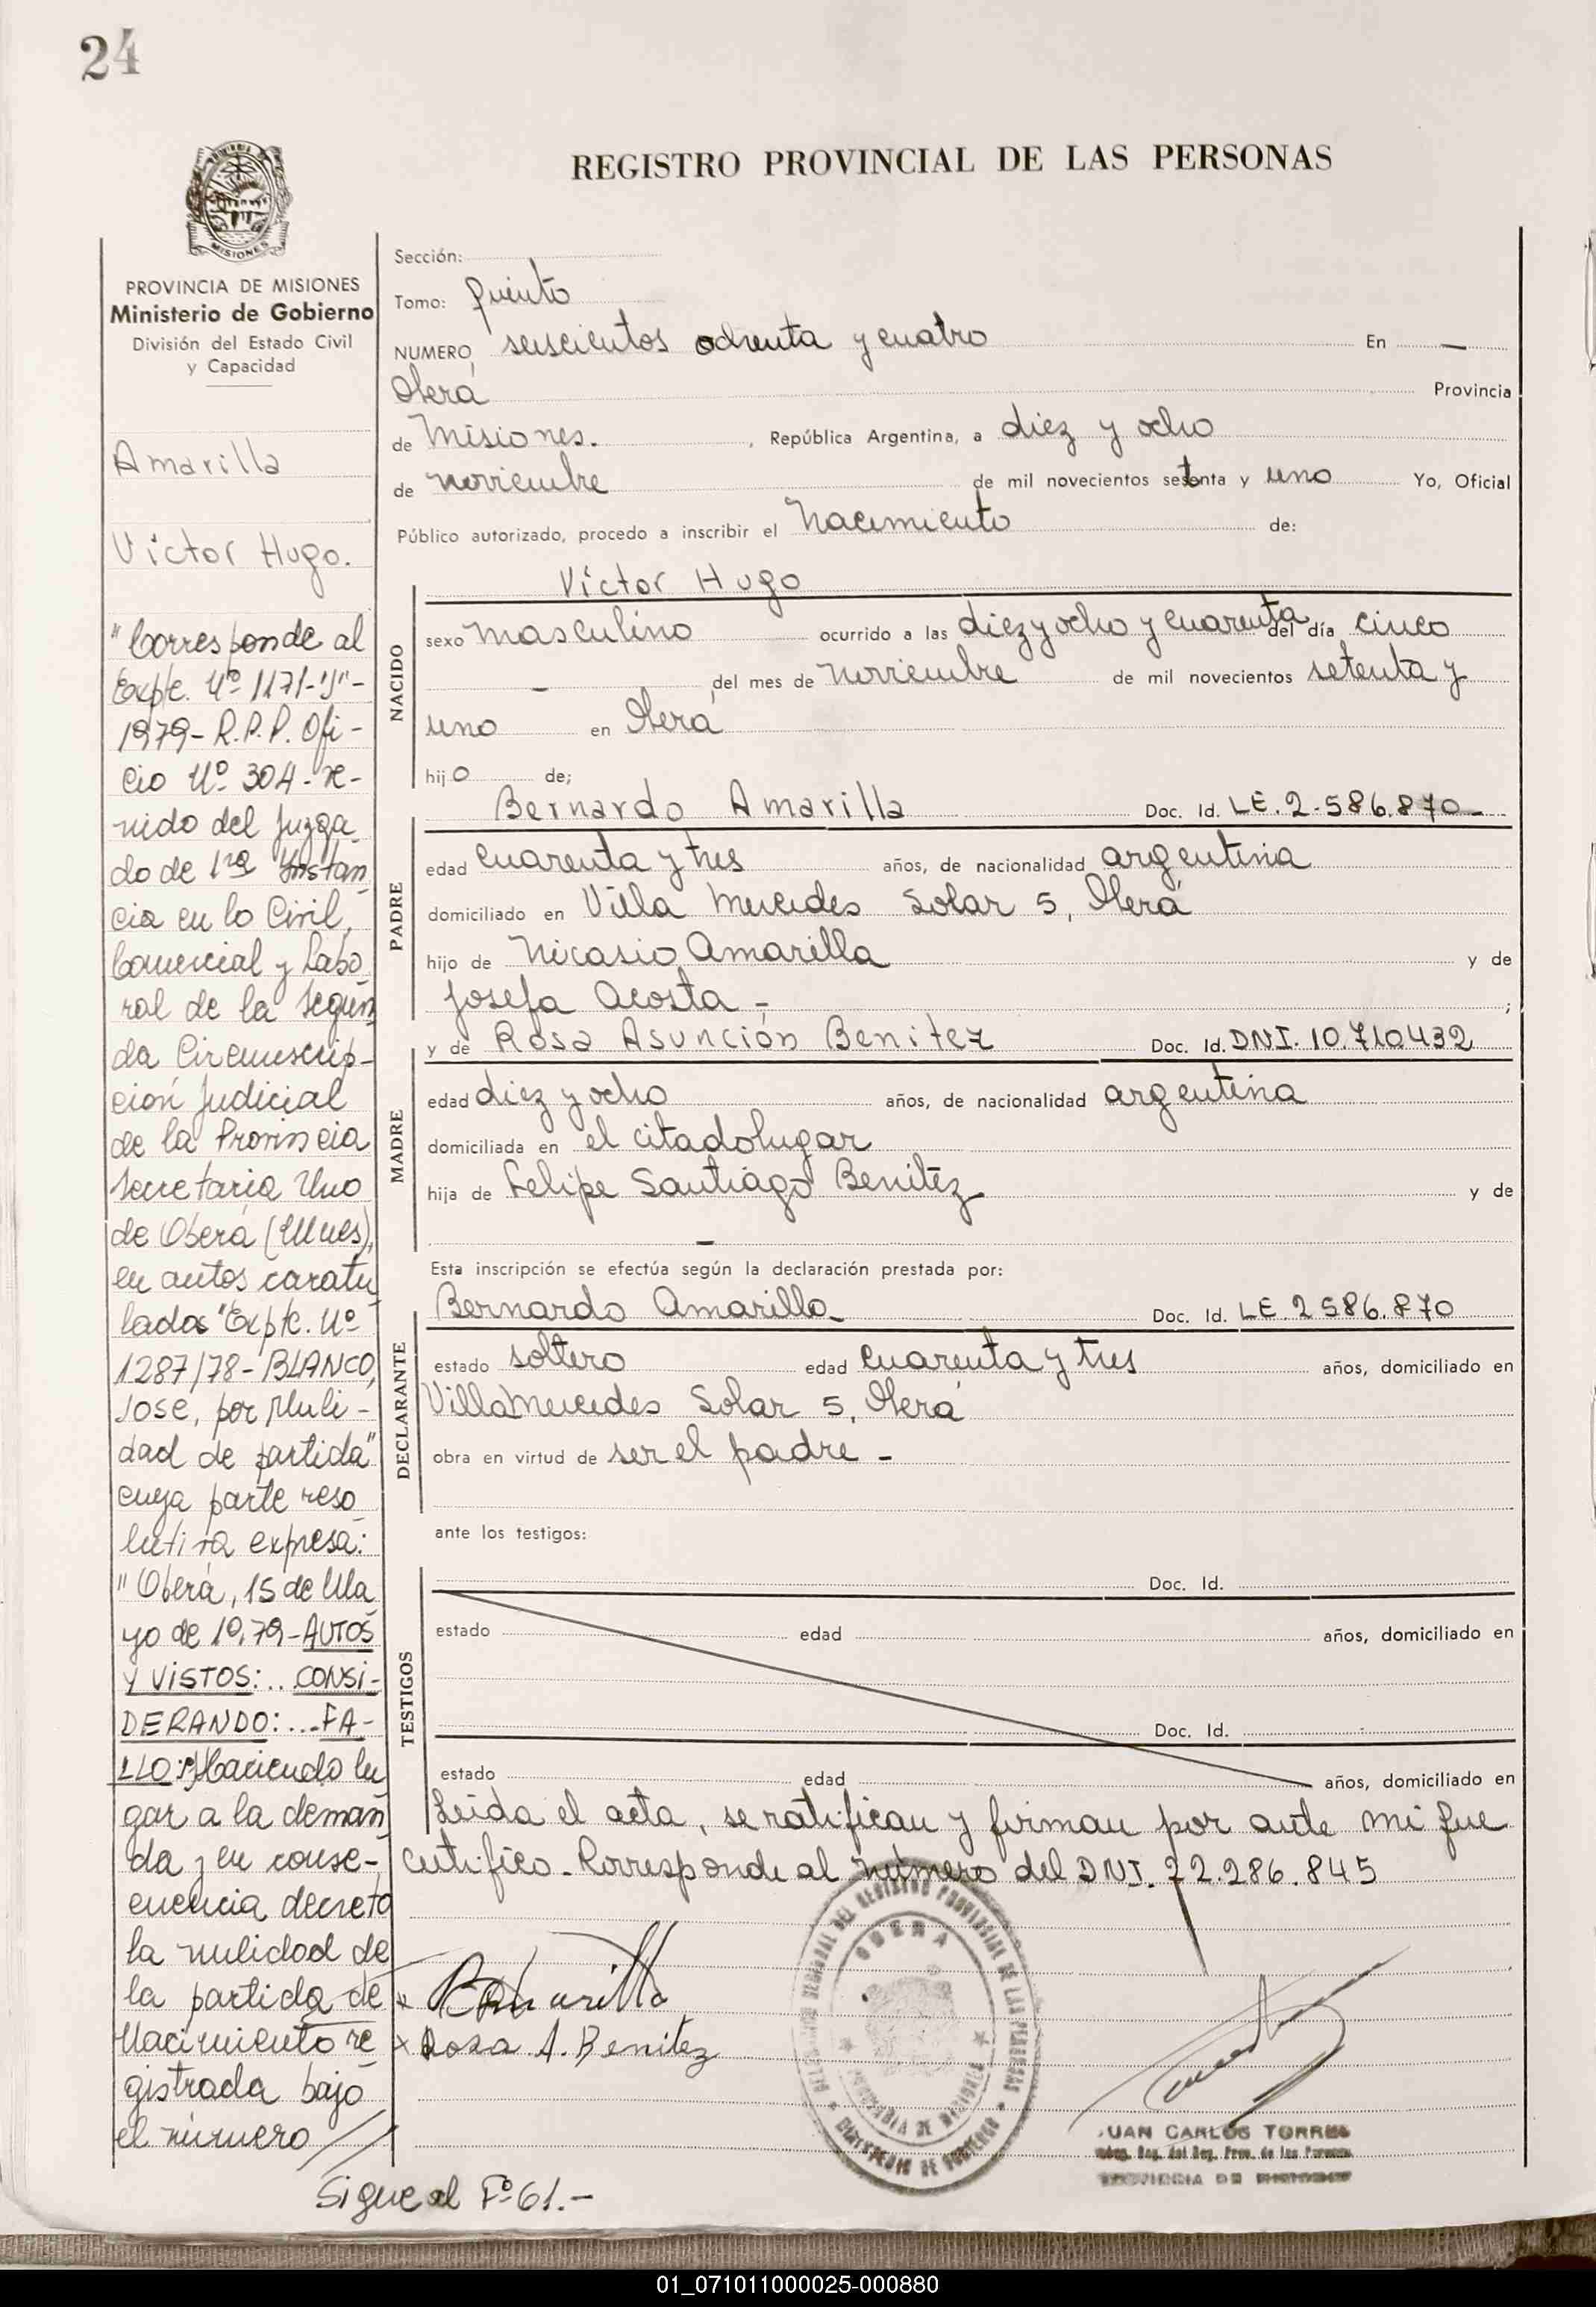 24
REGISTRO PROVINCIAL DE LAS PERSONAS
MISIONES
PROVINCIA DE MISIONES
Ministerio de Gobierno
División del Estado Civil
y Capacidad
Amarilla
Víctor Hugo.
"Corresponde al
Expte. Nº 1171-"J"-
1979- R.P.P. Ofi-
cio Nº 304- re-
nido del Juzga
do de 1ra Instan
cia en lo Civil,
Comercial y Labo
ral de la Segun
da Circunscrip-
ción Judicial
de la Provincia
Secretaria Uno
de Oberá (Mnes),
en autos caratu
lados "Expte. Nº
1287/78- BLANCO,
JOSE, por Nuli-
dad de partida"
cuya parte reso
lutiva expresa:
"Oberá, 15 de Ma
yo de 1979- AUTOS
Y VISTOS:.. CONSI-
DERANDO:... FA-
LLO: Haciendo lu
gar a la deman
da y en conse-
cuencia decreto
la nulidad de
la partida de
Nacimiento re
gistrada bajo
el número //
Sigue al Fº 61.-
Sección:
Tomo: Quinto
NUMERO, seiscientos ochenta y cuatro En —
Oberá Provincia
de Misiones. , República Argentina, a diez y ocho
de noviembre de mil novecientos setenta y uno Yo, Oficial
Público autorizado, procedo a inscribir el Nacimiento de:
Víctor Hugo
NACIDO
sexo masculino ocurrido a las diez y ocho y cuarenta del día cinco
– del mes de noviembre de mil novecientos setenta y
uno en Oberá
hijo de;
Bernardo Amarilla Doc. Id. LE. 2.586.870-
PADRE
edad cuarenta y tres años, de nacionalidad argentina
domiciliado en Villa Mercedes Solar 5, Oberá
hijo de Nicasio Amarilla y de
Josefa Acosta - ;
y de Rosa Asunción Benitez Doc. Id. DNI. 10.710432
MADRE
edad diez y ocho años, de nacionalidad argentina
domiciliada en el citado lugar
hija de Felipe Santiago Benitez y de
–
Esta inscripción se efectúa según la declaración prestada por:
Bernardo Amarilla Doc. Id. LE. 2 586.870
DECLARANTE
estado soltero edad cuarenta y tres años, domiciliado en
Villa Mercedes Solar 5, Oberá
obra en virtud de ser el padre -
ante los testigos:
TESTIGOS
Doc. Id.
estado edad años, domiciliado en
Doc. Id.
estado edad años, domiciliado en
Leída el acta, se ratifican y firman por ante mi que
certifico - Corresponde al número del DNI. 22.286.845
Rosa A. Benitez
OBERA
JUAN CARLOS TORRES
01_071011000025-000880